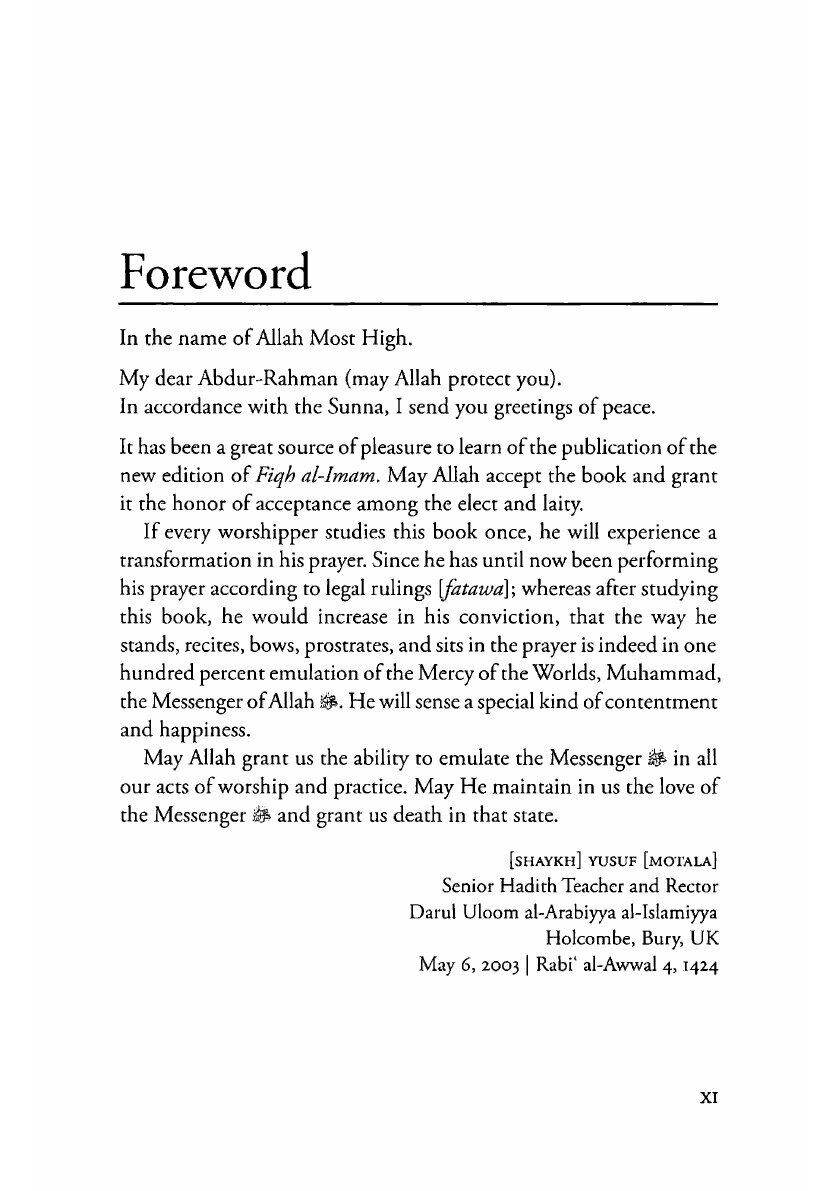 Foreword
In the name of Allah Most High.
My dear Abdur-Rahman (may Allah protect you).
In accordance with the Sunna, I send you greetings of peace.
It has been a great source of pleasure to learn of the publication of the
new edition of Fiqh al-Imam. May Allah accept the book and grant
it the honor of acceptance among the elect and laity.
If every worshipper studies this book once, he will experience a
transformation in his prayer. Since he has until now been performing
his prayer according to legal rulings [fatawa]; whereas after studying
this book, he would increase in his conviction, that the way he
stands, recites, bows, prostrates, and sits in the prayer is indeed in one
hundred percent emulation of the Mercy of the Worlds, Muhammad,
the Messenger of Allah ﷺ. He will sense a special kind of contentment
and happiness.
May Allah grant us the ability to emulate the Messenger ﷺ in all
our acts of worship and practice. May He maintain in us the love of
the Messenger ﷺ and grant us death in that state.
[SHAYKH] YUSUF [MOTALA]
Senior Hadith Teacher and Rector
Darul Uloom al-Arabiyya al-Islamiyya
Holcombe, Bury, UK
May 6, 2003 | Rabi‘ al-Awwal 4, 1424
XI